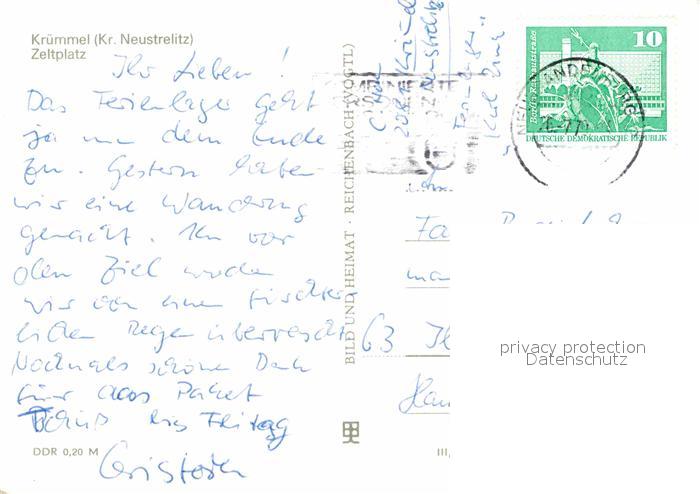 Krümmel (Kr. Neustrelitz)
Zeltplatz
Ihr Lieben!
Das Ferienlager geht
ja nun dem Ende
zu. Gestern haben
wir eine Wanderung
gemacht. Kurz vor
dem Ziel wurden
wir von einem fürchter-
lichen Regen überrascht
Nochmals schönen Dank
für das Paket
Tschüß bis Freitag
DDR 0,20 M
BILD UND HEIMAT · REICHENBACH (VOGTL)
III,
Fa
63
10
Berlin-Rathausstraße
DEUTSCHE DEMOKRATISCHE REPUBLIK
privacy protection
Datenschutz